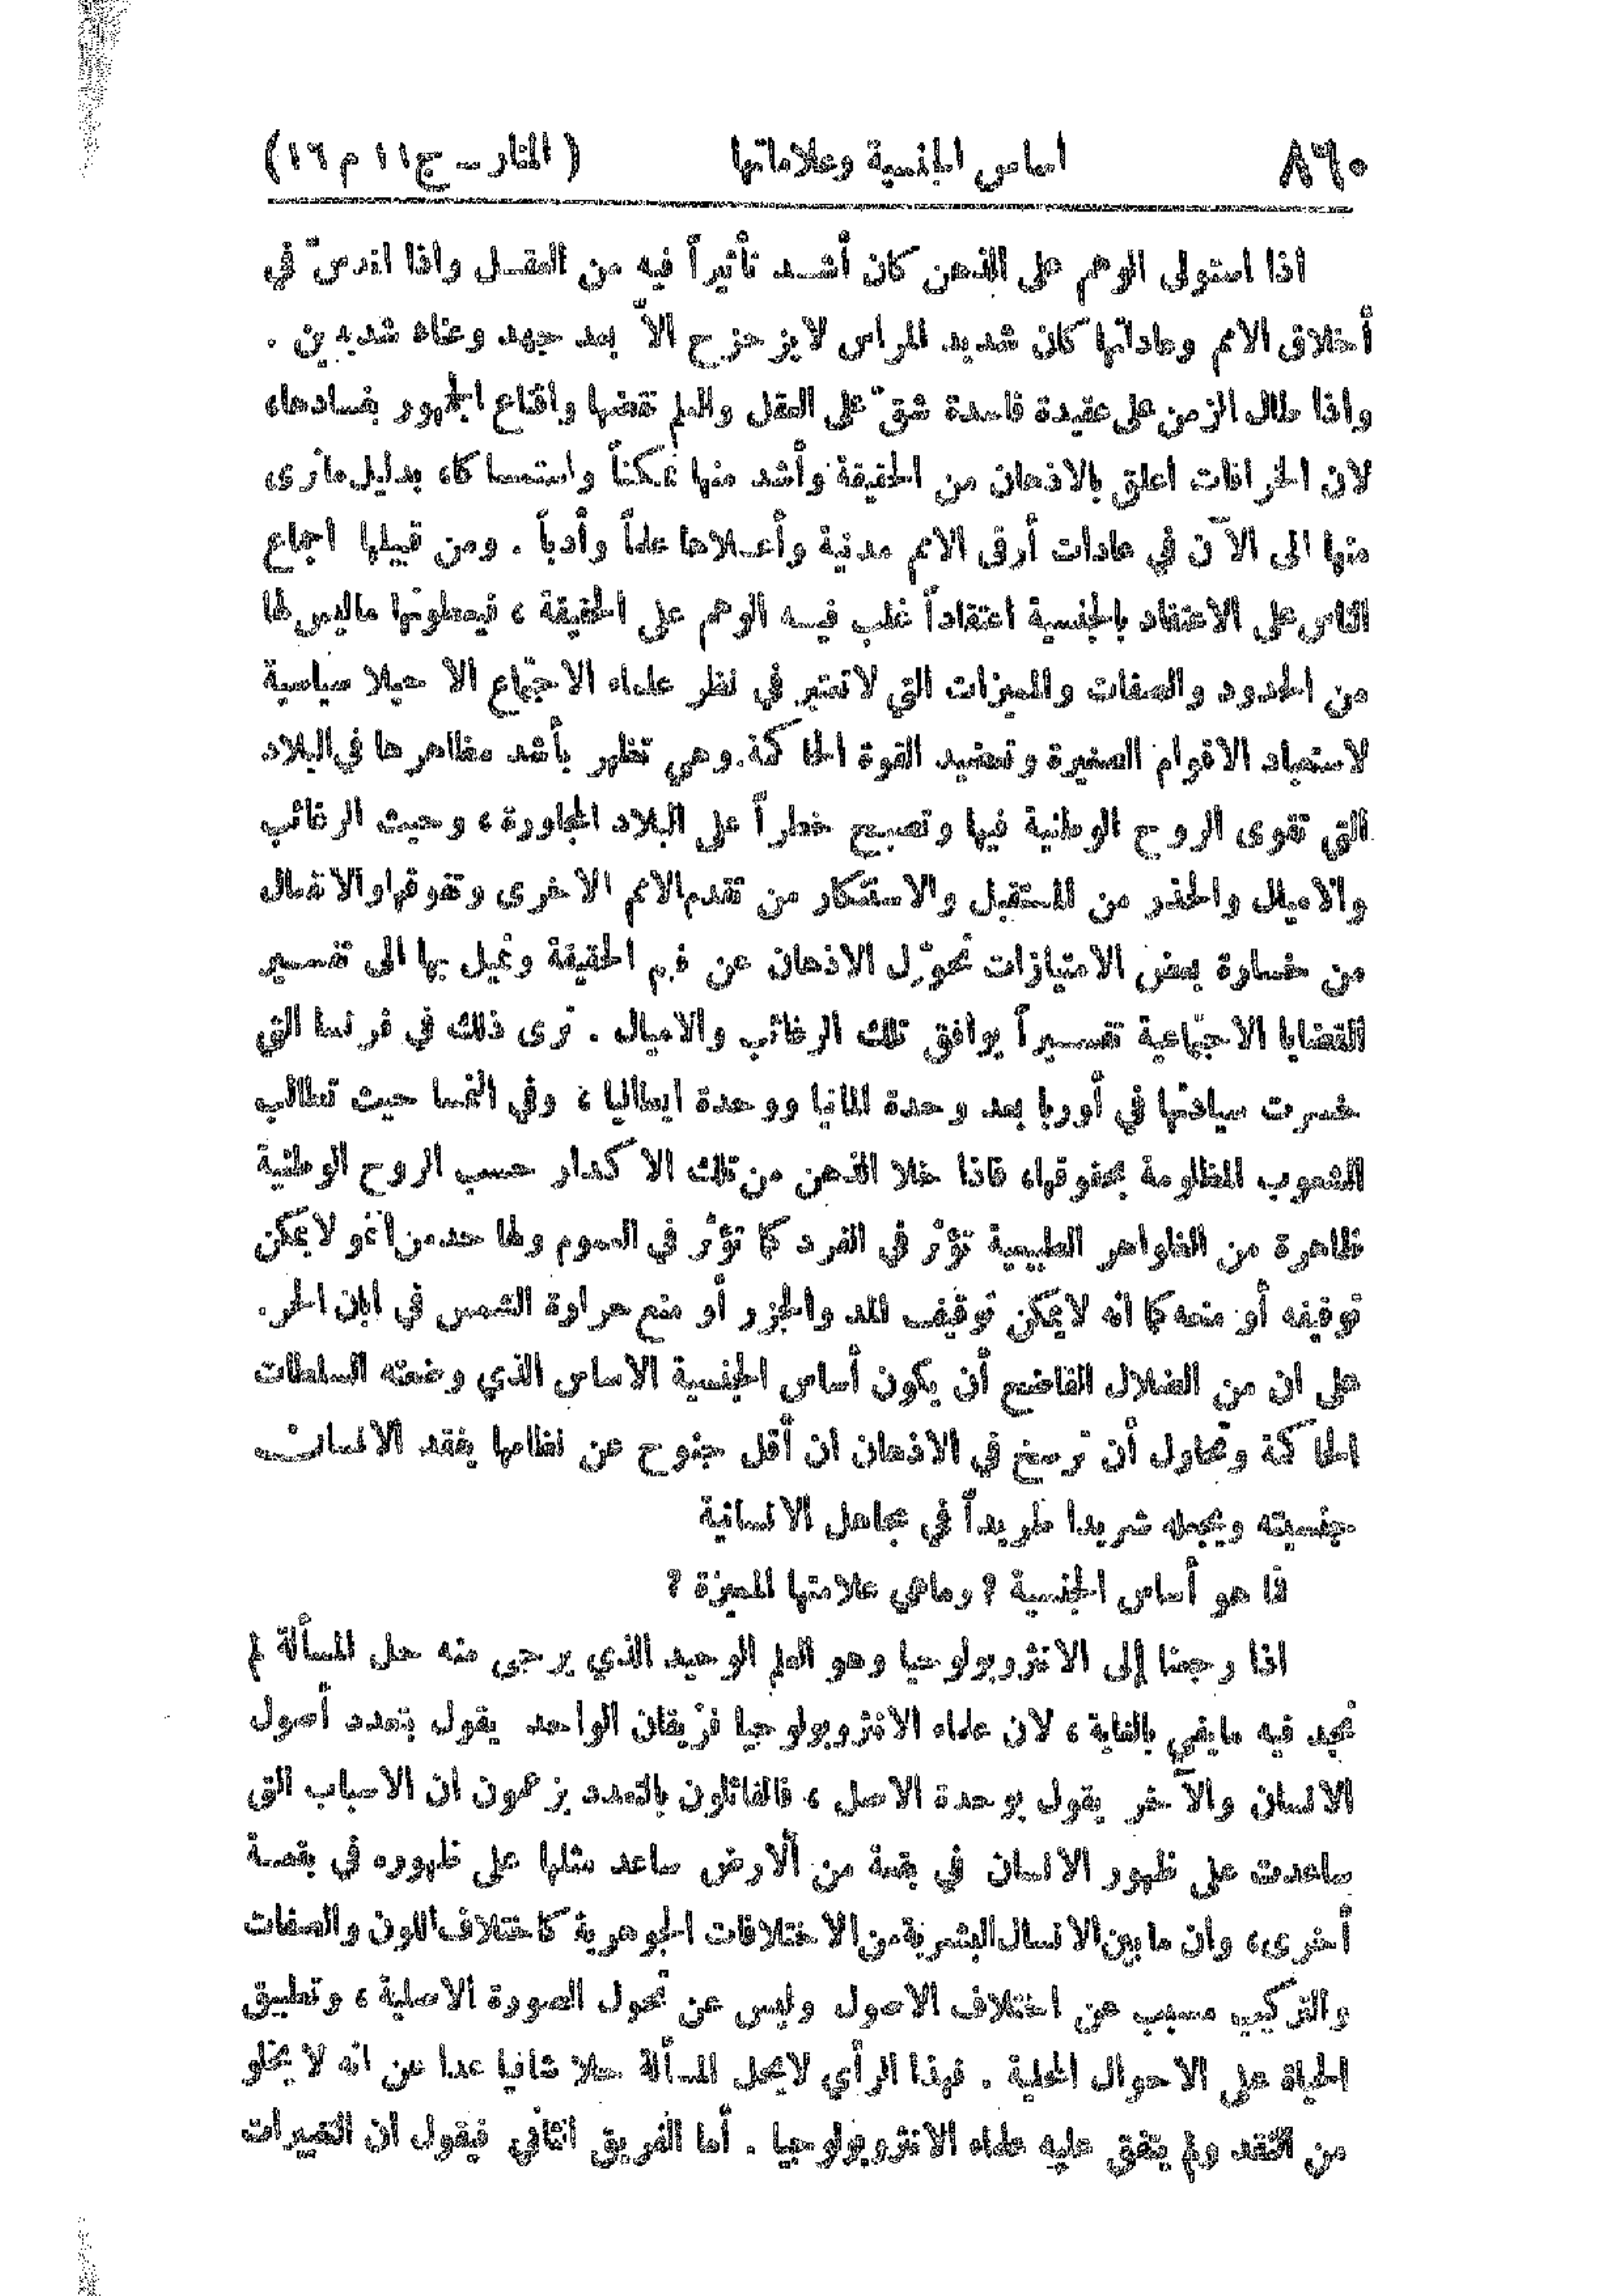 ٨٦٠ اساس الجنسية وعلاماتها ( المنار ــ ج ١١ م ١٦ )
اذا استولى الوهم على الذهن كان أشـد تأثيراً فيه من العقـل واذا اندسّ في
أخلاق الامم وعاداتها كان شديد المراس لا يزحزح الاّ بعد جهد وعناء شديدين .
واذا طال الزمن على عقيدة فاسدة شقّ على العقل والعلم نقضها واقناع الجمهور بفسادها،
لان الخرافات اعلق بالاذهان من الحقيقة وأشد منها تمكناً واستمساكا، بدليل مانرى
منها الى الآن في عادات أرقى الامم مدنية وأعـلاها علماً وأدباً . ومن قبيلها اجماع
الناس على الاعتقاد بالجنسية اعتقاداً غلب فيـه الوهم على الحقيقة ، فيعطونها ماليس لها
من الحدود والصفات والمميزات التي لاتعتبر في نظر علماء الاجتماع الا حيلا سياسية
لاستعباد الاقوام الصغيرة وتعضيد القوة الحاكمة. وهي تظهر بأشد مظاهرها في البلاد
التي تقوى الروح الوطنية فيها وتصبح خطراً على البلاد المجاورة ، وحيث الرغائب
والاميال والحذر من المستقبل والاستنكار من تقدم الامم الاخرى وتفوقها والانفعال
من خسارة بعض الامتيازات تحوّل الاذهان عن فهم الحقيقة وتميل بها الى تفسـير
القضايا الاجتماعية تفسـيراً يوافق تلك الرغائب والاميال . نرى ذلك في فرنسا التي
خسرت سيادتها في أوربا بعد وحدة المانيا ووحدة ايطاليا ، وفي النمسا حيث تطالب
الشعوب المظلومة بحقوقها، فاذا خلا الذهن من تلك الاكدار حسب الروح الوطنية
ظاهرة من الظواهر الطبيعية تؤثر في الفرد كما تؤثر في العموم ولها حد من النمو لا يمكن
توقيفه أو منعه كما انه لا يمكن توقيف المد والجزر أو منع حرارة الشمس في ابان الحر .
على ان من الضلال الفاضح أن يكون أساس الجنسية الاساس الذي وضعته السلطات
الحاكمة وتحاول أن ترسخ في الاذهان ان أقل جنوح عن نظامها يفقد الانسان
جنسيته ويجعله شريدا طريداً في مجاهل الانسانية
فما هو أساس الجنسية ؟ وماهي علامتها المميزة ؟
اذا رجعنا إلى الانثروبولوجيا وهو العلم الوحيد الذي يرجى منه حل المسألة لم
نجد فيه مايفي بالغاية ، لان علماء الانثروبولوجيا فريقان الواحد يقول بتعدد أصول
الانسان والآخر يقول بوحدة الاصل ، فالقائلون بالتعدد يزعمون ان الاسباب التي
ساعدت على ظهور الانسان في بقعة من الارض ساعد مثلها على ظهوره في بقعـة
أخرى، وان مابين الانسال البشرية من الاختلافات الجوهرية كاختلاف اللون والصفات
والتركيب مسبب عن اختلاف الاصول وليس عن تحول الصورة الاصلية ، وتطبيق
الحياة على الاحوال المحلية . فهذا الرأي لايحل المسألة حلا شافيا عدا عن انه لا يخلو
من النقد ولم يتفق عليه علماء الانثروبولوجيا . أما الفريق الثاني فيقول ان التغيرات